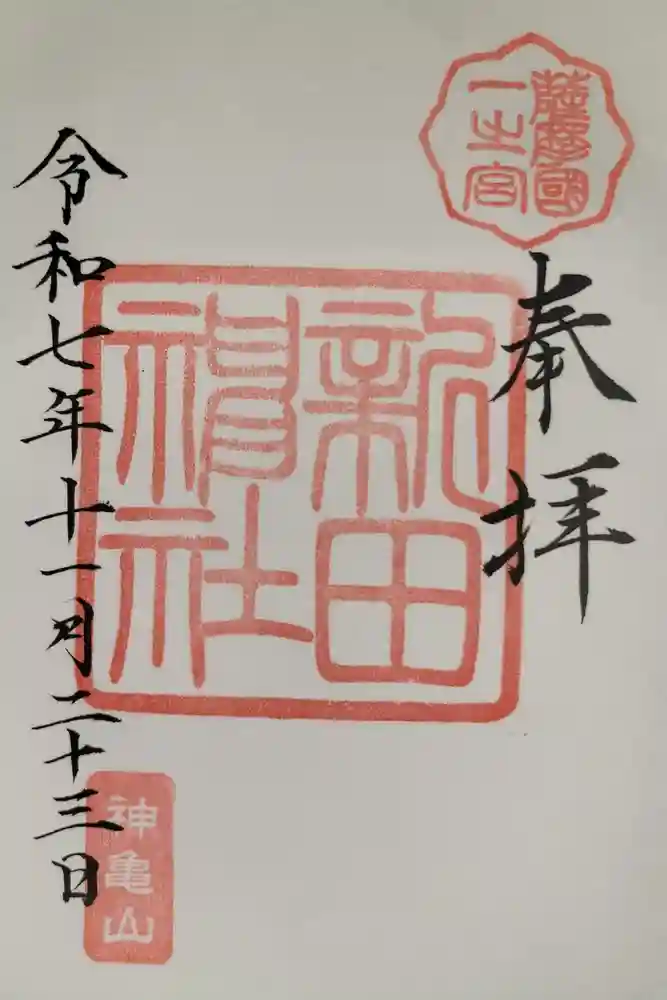 薩摩國
一之宮
奉拝
新田
神社
令和七年十一月二十三日
神亀山